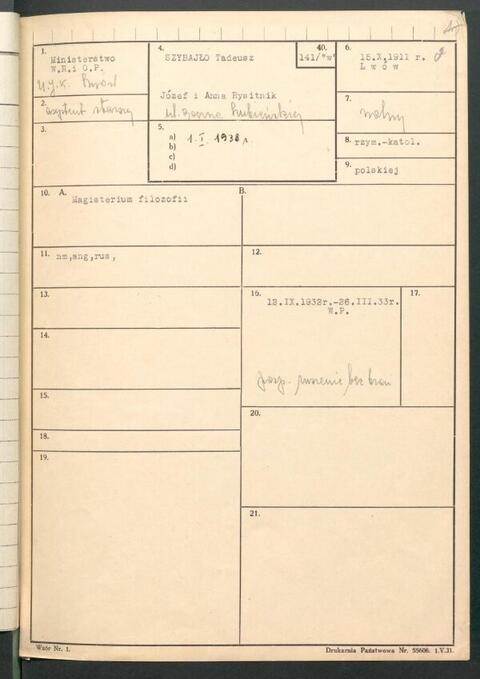 1.
Ministerstwo
W.R.i O.P.
U.J.K. Lwów
2.
asystent starszy
3.
4.
SZYBAJŁO Tadeusz
40.
141/"w"
Józef i Anna Rysitnik
ul.
5.
a) 1.I.1938 r.
b)
c)
d)
6.
15.X.1911 r.
Lwów
7.
wolny
8. rzym.-katol.
9.
polskiej
10. A. Magisterium filozofii
B.
11. nm,ang,rus,
12.
13.
14.
15.
16.
12.IX.1932r.-26.III.33r.
W.P.
bez broni
17.
18.
19.
20.
21.
Wzór Nr. 1.
Drukarnia Państwowa Nr. 55606. 1.V.31.